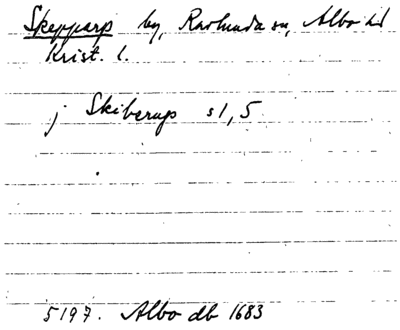 Skepparp by, Ravlunda sn, Albo hd
Krist. l.
j Skiberup s1, 5
5197. Albo db 1683